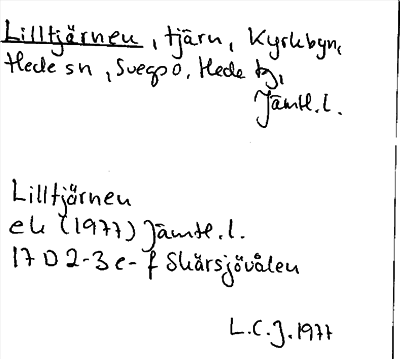 Lilltjärnen, tjärn, Kyrkbyn,
Hede sn, Svegs o. Hede tg,
Jämtl. l.
Lilltjärnen
ek (1977) Jämtl. l.
17 D 2-3 e-f Skärsjövålen
L.C.J. 1977